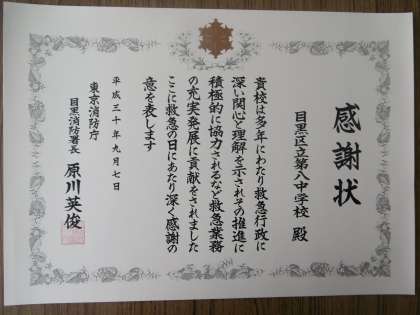 感謝状
目黒区立第八中学校 殿
貴校は多年にわたり救急行政に
深い関心と理解を示されその推進に
積極的に協力されるなど救急業務
の充実発展に貢献をされました
ここに救急の日にあたり深く感謝の
意を表します
平成三十年九月七日
東京消防庁
目黒消防署長 原川英俊